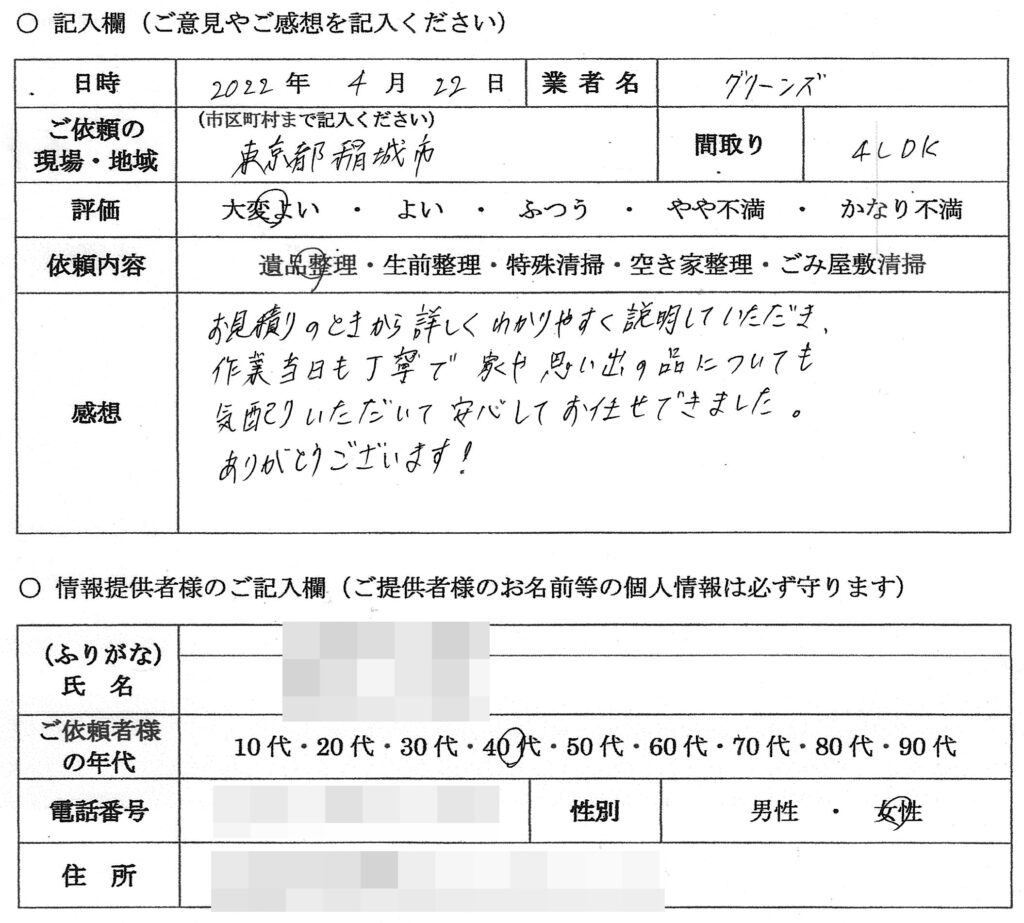 ○ 記入欄（ご意見やご感想を記入ください）
日時 2022年 4月 22日 業者名 グリーンズ
ご依頼の現場・地域 (市区町村まで記入ください) 東京都稲城市 間取り 4LDK
評価 大変よい ・ よい ・ ふつう ・ やや不満 ・ かなり不満
依頼内容 遺品整理・生前整理・特殊清掃・空き家整理・ごみ屋敷清掃
感想
お見積りのときから詳しくわかりやすく説明していただき、
作業当日も丁寧で家や思い出の品についても
気配りいただいて安心してお任せできました。
ありがとうございます!
○ 情報提供者様のご記入欄（ご提供者様のお名前等の個人情報は必ず守ります）
(ふりがな)
氏 名
ご依頼者様の年代 10代・20代・30代・40代・50代・60代・70代・80代・90代
電話番号 性別 男性 ・ 女性
住 所